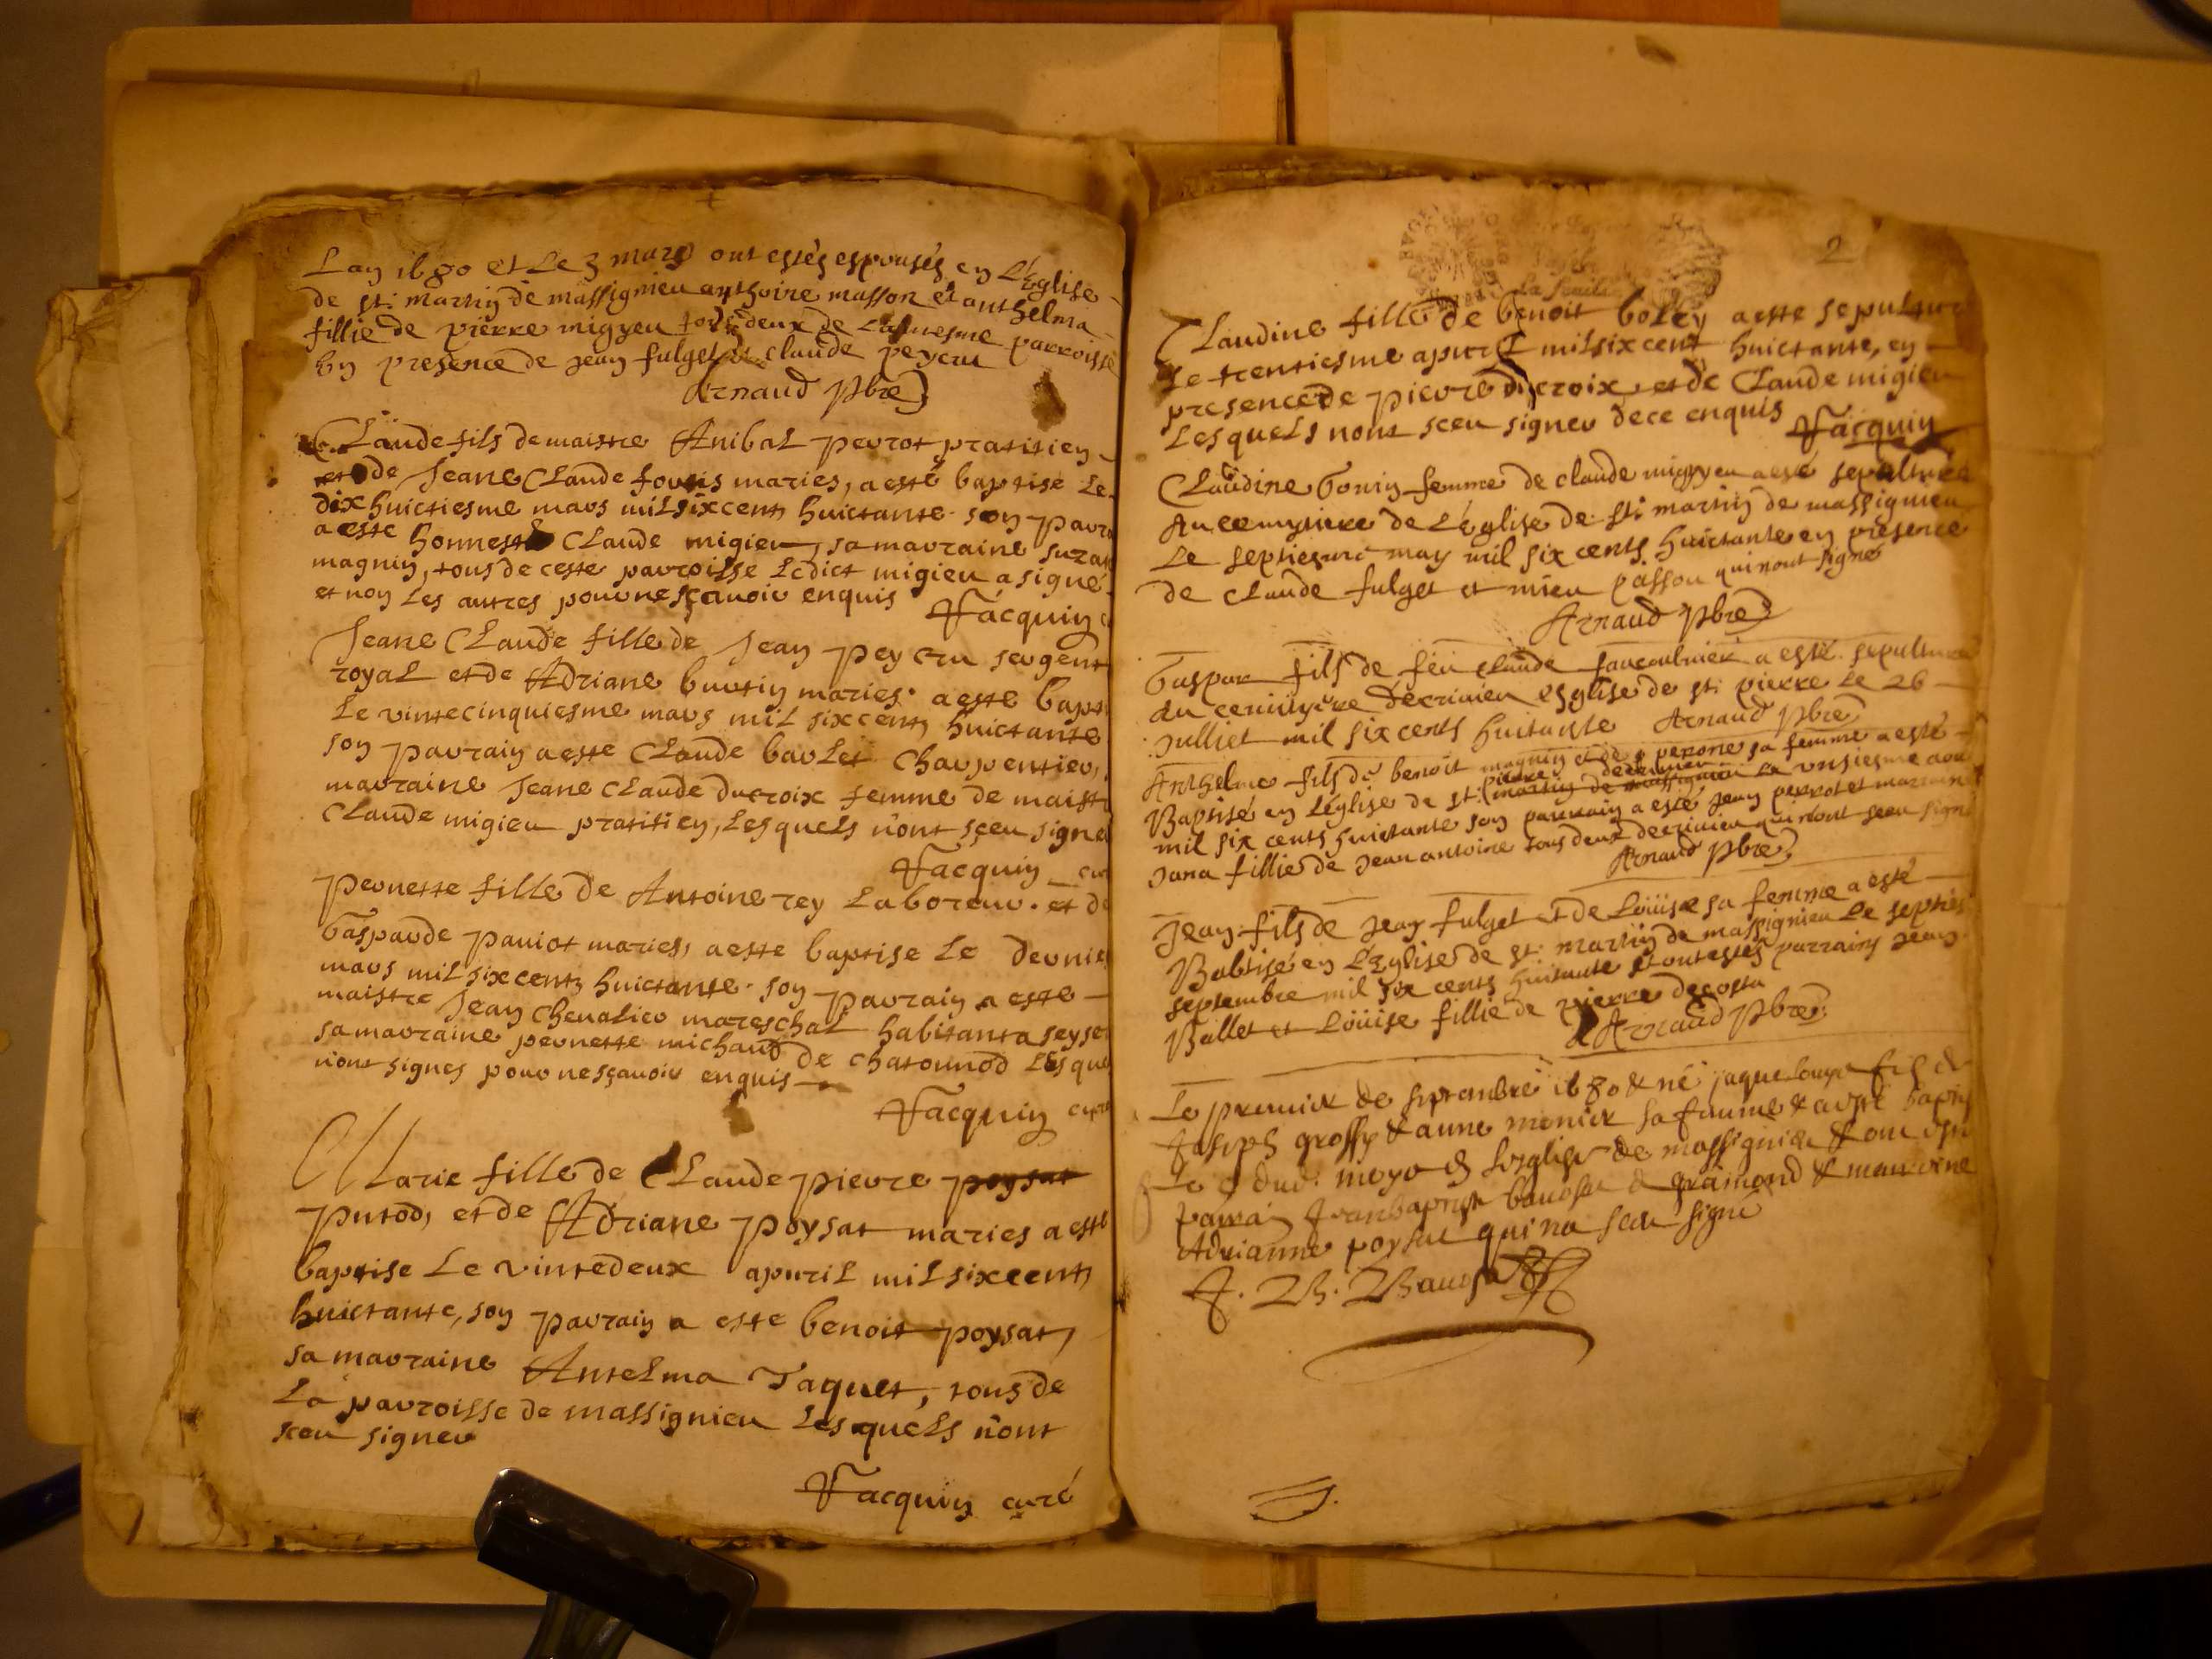 Lan 1680 et Le 3 mars ont estés espousés en L'Eglise
de st: martin de massignieu anthoine masson et anthelma
fillie de pierre migyeu tous deux de La mesme parroisse
En presence de Jean fulget et claude peycru
Arnaud pbre
Claude fils de maistre Anibal perrot pratitien
et de Jeane Claude fouris maries, a esté baptise Le
dix huictiesme mars mil six cents huictante son parra
a este honneste Claude migieu, sa marraine suzan
magnin, tous de ceste parroisse Ledict migieu a signé
et non Les autres pour ne sçavoir enquis Jacquin c
Jeane Claude fille de Jean peycru sergent
royal et de Adriane burtin maries. a este bapti
Le vintecinquiesme mars mil six cents huictante
son parrain a este Claude barlet charpentier,
marraine Jeane Claude ducroix femme de maistr
Claude migieu pratitien, Les quels n'ont sçeu signe
Jacquin cur
pernette fille de Antoine rey Laboreur. et de
Gasparde paviot maries, a este baptise Le dernie
mars mil six cents huictante. son parrain a este
maistre Jean chevalier mareschal habitant a seyse
sa marraine pernette michaud de chatonnod Les que
n'ont signes pour ne sçavoir enquis
Jacquin cure
Marie fille de Claude pierre poysat
putod, et de Adriane poysat maries a este
baptise Le vintedeux apvril mil six cents
huictante, son parrain a este benoit poysat,
sa marraine Antelma Taquet, tous de
La parroisse de massignieu Les quels n'ont
sceu signer
Jacquin curé
2
Claudine fille de benoit boley a este sepulture
Le trentiesme apvril mil six cent huictante, en
presence de pierre ducroix et de Claude migieu
Les quels n'ont sceu signer de ce enquis Jacquin
Claudine Gonin femme de claude migyeu a esté sepulturée
Au cemytiere de L'église de st: martin de massignieu
Le septiesme may mil six cents huictante en presence
de claude fulget et mieu passon qui n'ont signé
Arnaud pbre
Gaspar fils de feu claude faucoulnier a esté sepulturé
du cemytiere decrivieu esglise de st: pierre Le 26
Julliet mil six cents huitante Arnaud pbre
Anthelme fils de benoit magnin et de perone sa femme a esté
pierre decrivieu
Baptisé en Léglise de st: martin de massignieu Le unsiesme aou
mil six cents huictante son parrain a esté Jean perrot et marraine
Jana fillie de Jean antoine tous deux decrivieu qui n'ont sceu signé
Arnaud pbre
Jean fils de Jean fulget et de Loüise sa femme a esté
Babtisé en L'Eglise de st: martin de massignieu Le septies
septembre mil six cents huitante et ont estés parrains Jean
Ballet et Loüise fillie de pierre decosta
Arnaud pbre
Le premier de septambre 1680 & né jaque louys fils de
Joseph grossy & anne monier sa famme & a esté baptis
Le 9 dud. moys en Lesglise de massignieu & on esté
parrain Jean baptiste bauosat de gramond & marrene
Adrianne poysat qui na sceu signé
J. B. Bauosat